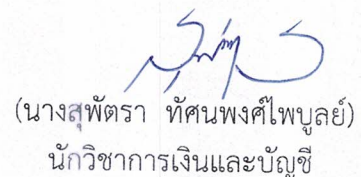 (นางสุพัตรา ทัศนพงศ์ไพบูลย์)
นักวิชาการเงินและบัญชี